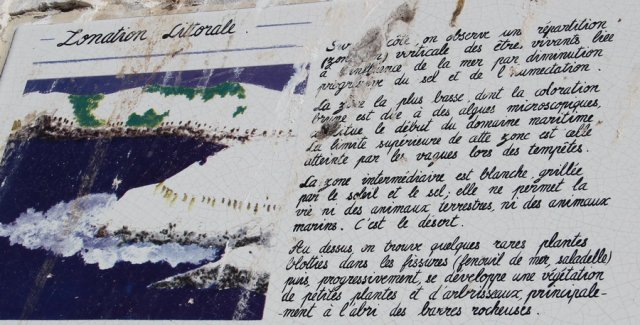 Zonation Littorale.
Sur côte, on observe un répartition
verticale des êtres vivants liée
à l'influence de la mer par diminution
progressive du sel et de l'humectation.
La zone la plus basse dont la coloration
brune est due à des algues microscopiques,
constitue le début du domaine maritime
La limite supérieure de cette zone est celle
atteinte par les vagues lors des tempêtes.
La zone intermédiaire est blanche, grillée
par le soleil et le sel; elle ne permet la
vie ni des animaux terrestres, ni des animaux
marins. C'est le désert.
Au dessus, on trouve quelques rares plantes
blotties dans les fissures (fenouil de mer, saladelle)
puis, progressivement, se développe une végétation
de petites plantes et d'arbrisseaux, principale-
-ment à l'abri des barres rocheuses.